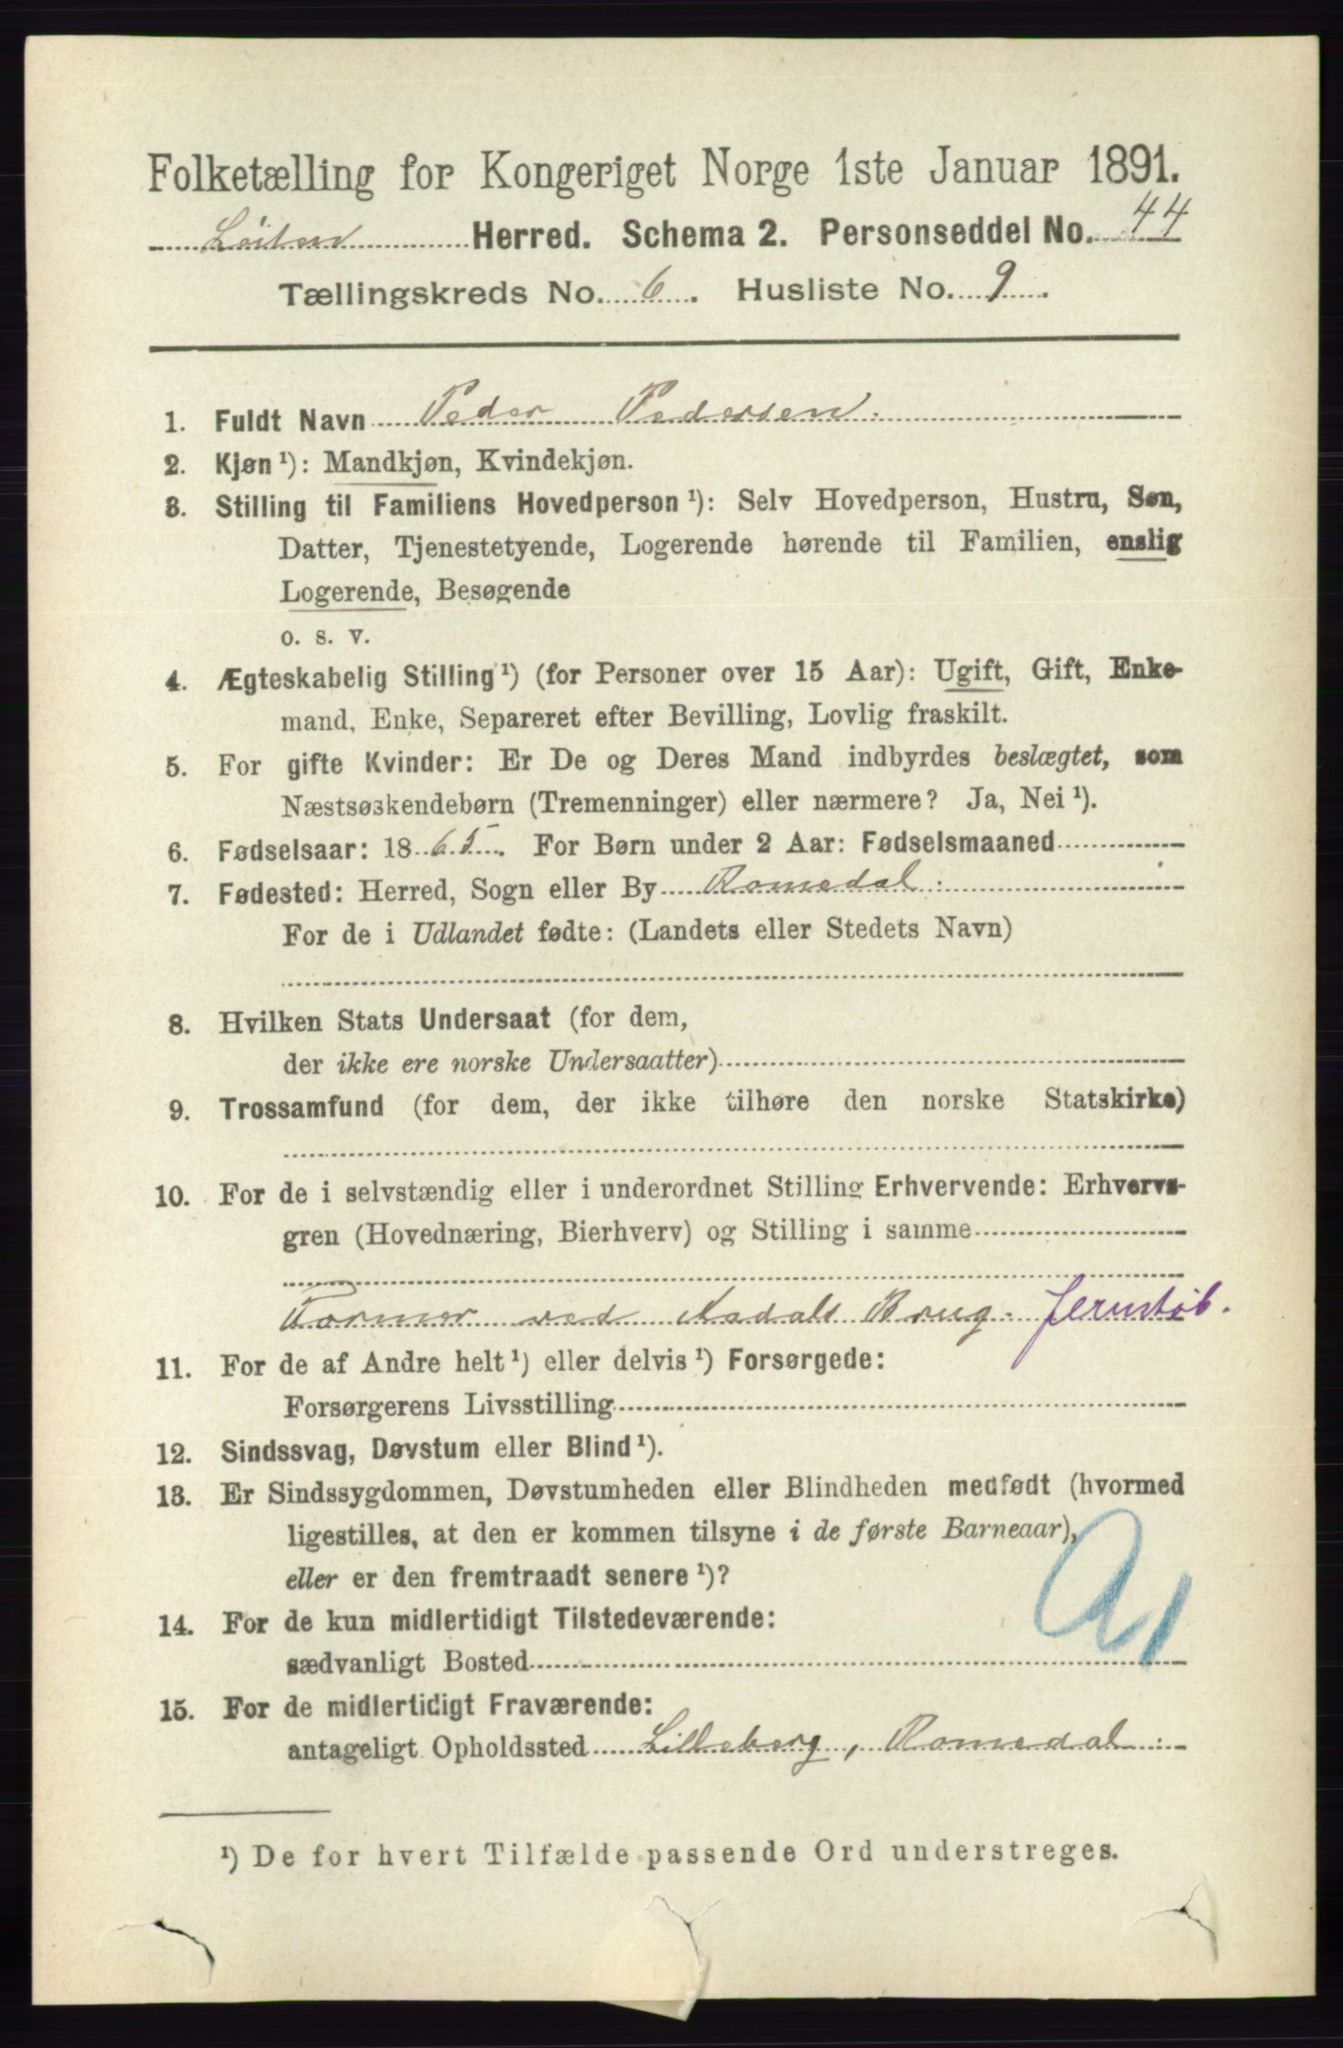 Folketælling for Kongeriget Norge 1ste Januar 1891.
Löiten Herred. Schema 2. Personseddel No. 44
Tællingskreds No. 6. Husliste No. 9.
1. Fuldt Navn Peder Pedersen.
2. Kjøn ¹): Mandkjøn, Kvindekjøn.
3. Stilling til Familiens Hovedperson ¹): Selv Hovedperson, Hustru, Søn,
Datter, Tjenestetyende, Logerende hørende til Familien, enslig
Logerende, Besøgende
o. s. v.
4. Ægteskabelig Stilling ¹) (for Personer over 15 Aar): Ugift, Gift, Enke-
mand, Enke, Separeret efter Bevilling, Lovlig fraskilt.
5. For gifte Kvinder: Er De og Deres Mand indbyrdes beslægtet, som
Næstsøskendebørn (Tremenninger) eller nærmere? Ja, Nei ¹).
6. Fødselsaar: 1865. For Børn under 2 Aar: Fødselsmaaned
7. Fødested: Herred, Sogn eller By Romedal.
For de i Udlandet fødte: (Landets eller Stedets Navn)
8. Hvilken Stats Undersaat (for dem,
der ikke ere norske Undersaatter)
9. Trossamfund (for dem, der ikke tilhøre den norske Statskirke)
10. For de i selvstændig eller i underordnet Stilling Erhvervende: Erhvervs-
gren (Hovednæring, Bierhverv) og Stilling i samme
Former ved Aadals Brug. jernstøb.
11. For de af Andre helt ¹) eller delvis ¹) Forsørgede:
Forsørgerens Livsstilling
12. Sindssvag, Døvstum eller Blind ¹).
13. Er Sindssygdommen, Døvstumheden eller Blindheden medfødt (hvormed
ligestilles, at den er kommen tilsyne i de første Barneaar),
eller er den fremtraadt senere ¹)?
14. For de kun midlertidigt Tilstedeværende:
sædvanligt Bosted
15. For de midlertidigt Fraværende:
antageligt Opholdssted Lilleberg, Romedal.
¹) De for hvert Tilfælde passende Ord understreges.